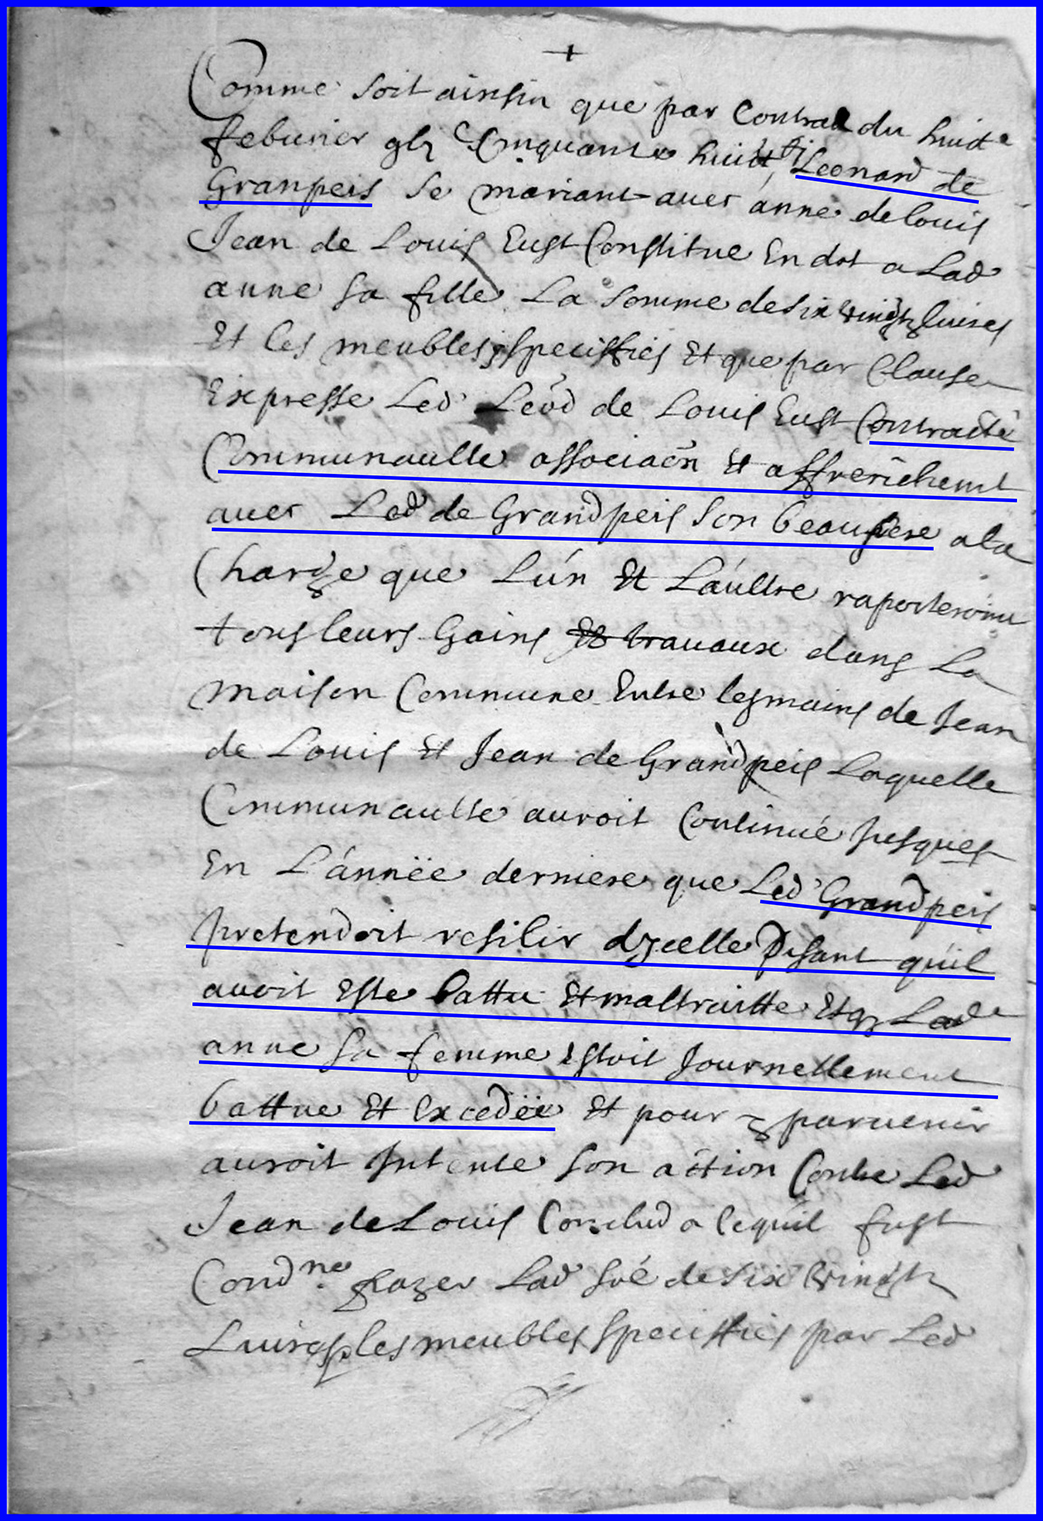 +
Comme soit ainsin que par Contract du huict.e
febvrier Cinquante huict, Leonard de
Granpeis se mariant avec anne de louis
Jean de Louis Eust Constitue En dot a Lad
anne sa fille La somme de six vingtz livres
Et les meubles speciffies Et que par Clause
Expresse Led Leo͞d de Louis Eust Contracte
Communaulte associaõn Et affrerichemt
avec Led de Grandpeis son beaufrere a la
Charge que L'un Et L'aultre raporteroint
tous leurs Gains Et travaux dans La
maison Commune Entre les mains de Jean
de Louis Et Jean de Grandpeis Laquelle
Communaulte auroit Continué Jusques
En L'année derniere que Led Grandpeis
pretendoit resilir d'ycelle Disant qu'il
avoit Este battu Et maltraitte Et q Lade
anne sa femme Estoit Journellement
battue Et Excedée Et pour y parvenir
auroit Intente son action Contre Led
Jean de Louis Conclud a ce qu'il fust
Condne payer Lad soe de six vingtz
Livres les meubles speciffies par Led